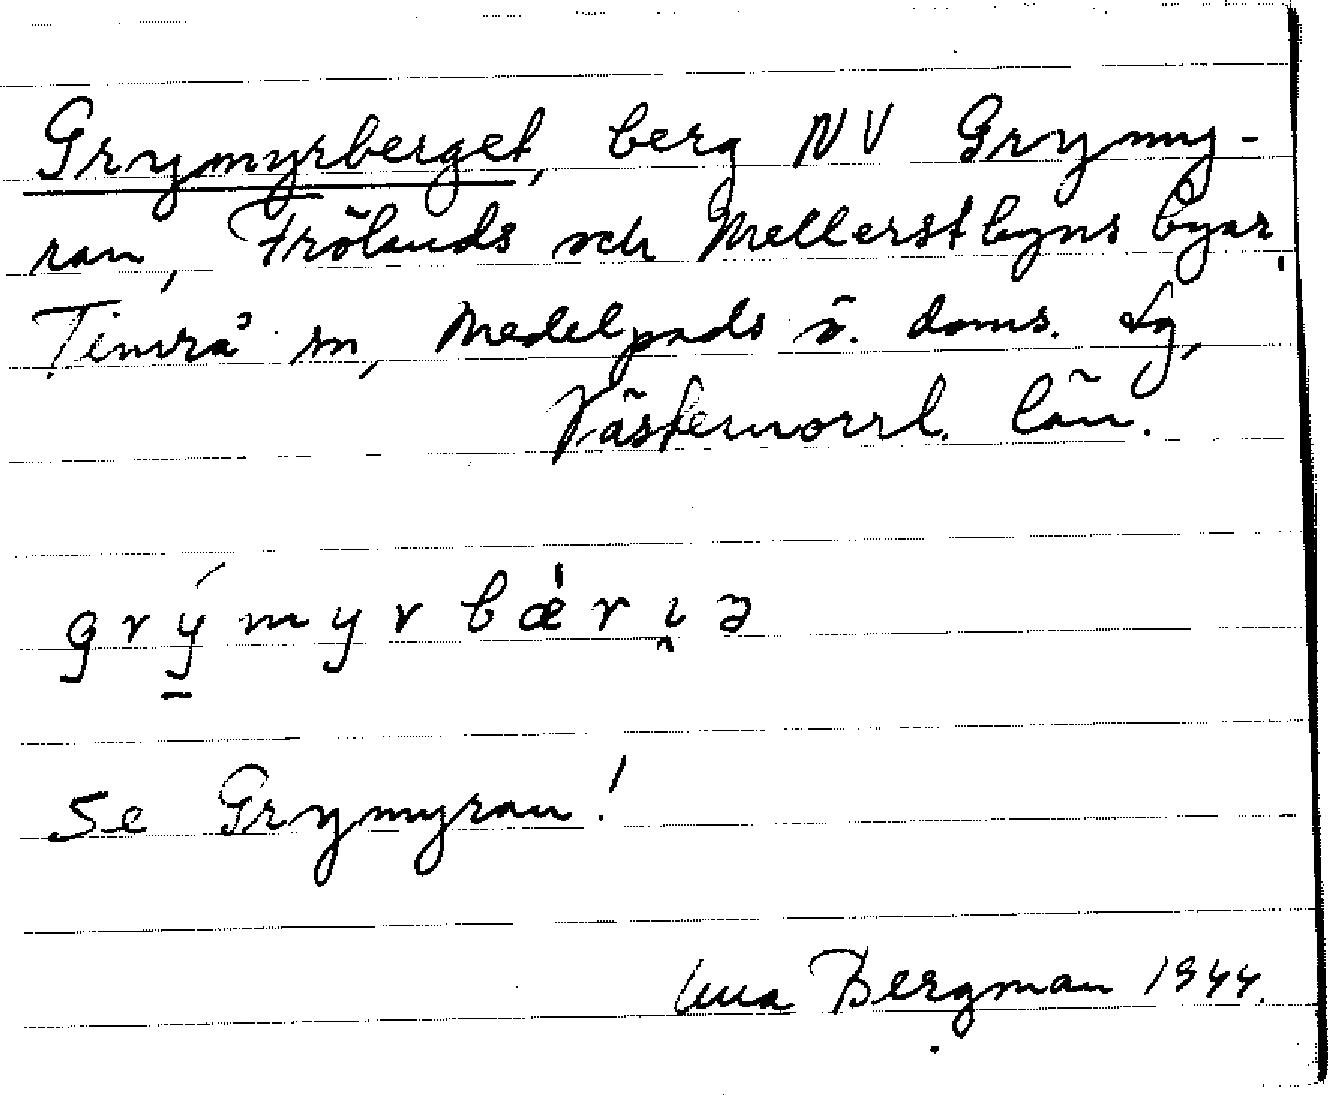 Grymyrberget, berg NV Grymy-
ran, Frölands och Mellerstbyns byar,
Timrå sn, Medelpads ö. doms. dg,
Västernorrl. län.
grýmyrbǽri̯ə
Se Grymyran!
Bergman 1944.